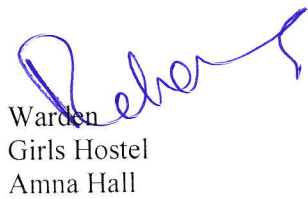 Warden
Girls Hostel
Amna Hall